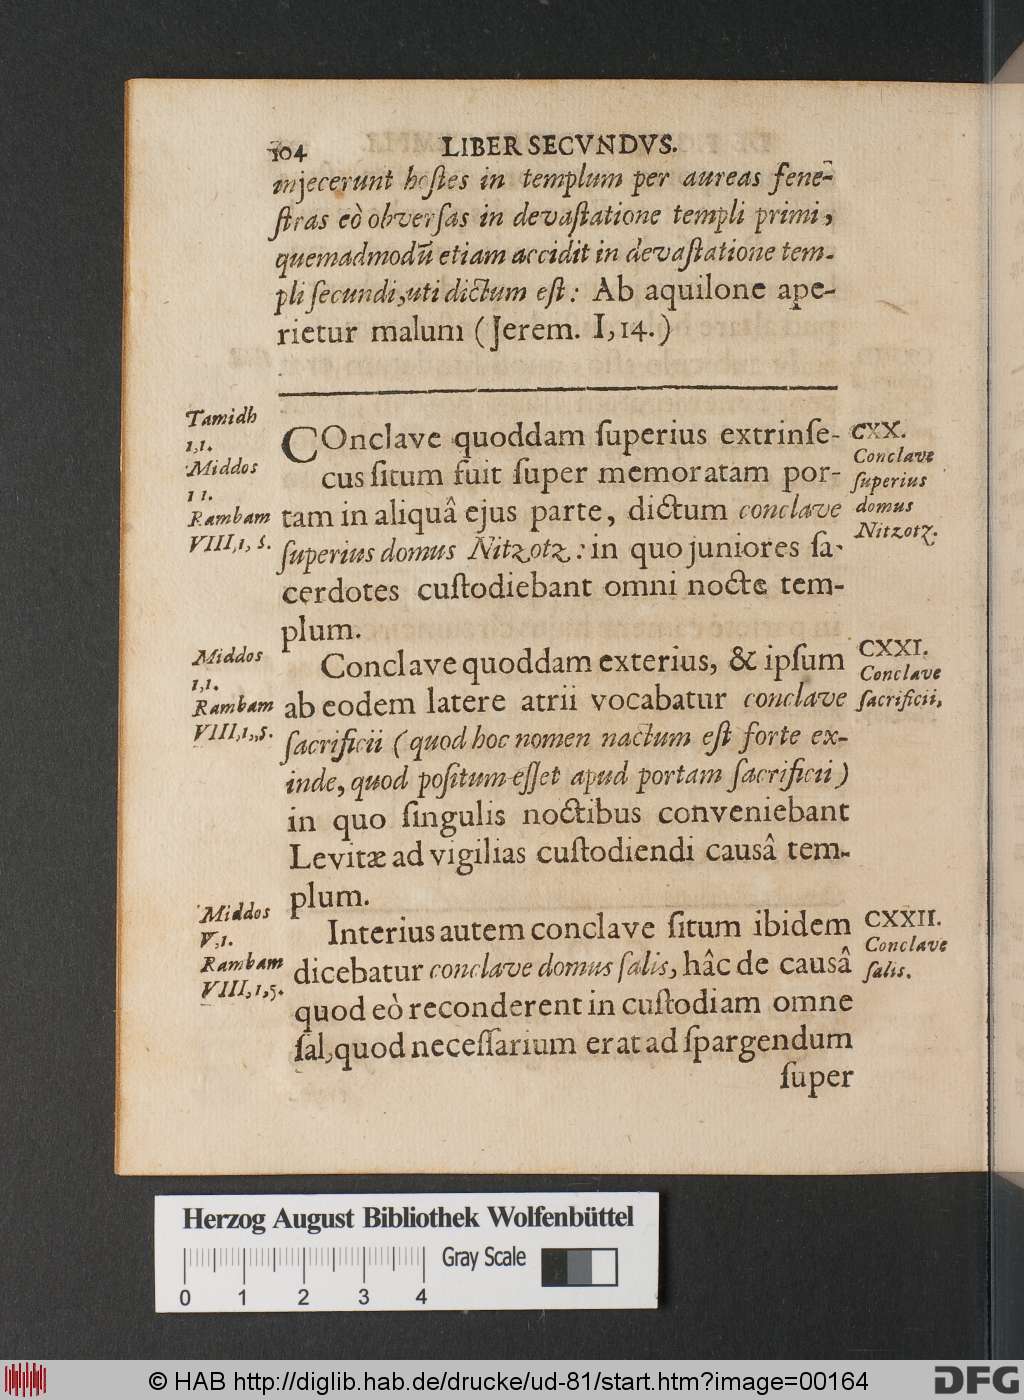 104 LIBER SECVNDVS.
injecerunt hoſtes in templum per aureas fene-
ſtras eò obverſas in devaſtatione templi primi,
quemadmodũ etiam accidit in devaſtatione tem-
pli ſecundi, uti dictum eſt: Ab aquilone ape-
rietur malum (Jerem. I, 14.)
Tamidh
1,1.
Middos
1 1.
Rambam
VIII,1, 5.
COnclave quoddam ſuperius extrinſe-
cus ſitum fuit ſuper memoratam por-
tam in aliquâ ejus parte, dictum conclave
ſuperius domus Nitzotz: in quo juniores ſa-
cerdotes cuſtodiebant omni nocte tem-
plum.
CXX.
Conclave
ſuperius
domus
Nitzotz.
Middos
1,1.
Rambam
VIII,1,,5.
Conclave quoddam exterius, & ipſum
ab eodem latere atrii vocabatur conclave
ſacrificii (quod hoc nomen nactum eſt forte ex-
inde, quod poſitum eſſet apud portam ſacrificii)
in quo ſingulis noctibus conveniebant
Levitæ ad vigilias cuſtodiendi causâ tem-
plum.
CXXI.
Conclave
ſacrificii,
Middos
V,1.
Rambam
VIII,1,5.
Interius autem conclave ſitum ibidem
dicebatur conclave domus ſalis, hâc de causâ
quod eò reconderent in cuſtodiam omne
ſal, quod neceſſarium erat ad ſpargendum
ſuper
CXXII.
Conclave
ſalis.
Herzog August Bibliothek Wolfenbüttel
Gray Scale
0 1 2 3 4
© HAB http://diglib.hab.de/drucke/ud-81/start.htm?image=00164
DFG